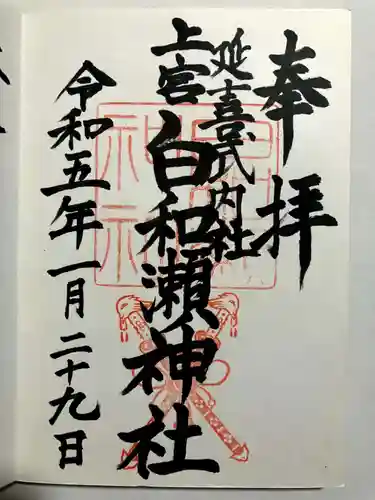 奉拝
延喜式内社
上宮 白和瀬神社
令和五年一月二十九日